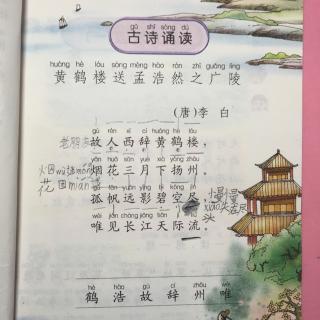 gǔ shī sòng dú
古诗诵读
huáng hè lóu sòng mèng hào rán zhī guǎng líng
黄鹤楼送孟浩然之广陵
（唐）李 白
gù rén xī cí huáng hè lóu
故人西辞黄鹤楼，
yān huā sān yuè xià yáng zhōu
烟花三月下扬州。
gū fān yuǎn yǐng bì kōng jìn
孤帆远影碧空尽，
wéi jiàn cháng jiāng tiān jì liú
唯见长江天际流。
hè hào gù cí zhōu wéi
鹤 浩 故 辞 州 唯